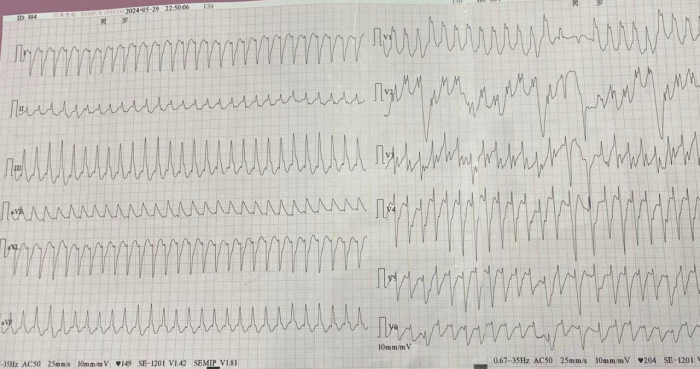 ID: 884
2024-05-29 22:50:06
男 岁
男 岁
I
II
III
aVR
aVL
aVF
V1
V2
V3
V4
V5
V6
10mm/mV
-35Hz AC50 25mm/s 10mm/mV ♥149 SE-1201 V1.42 SEMIP V1.81
0.67~35Hz AC50 25mm/s 10mm/mV ♥204 SE-1201